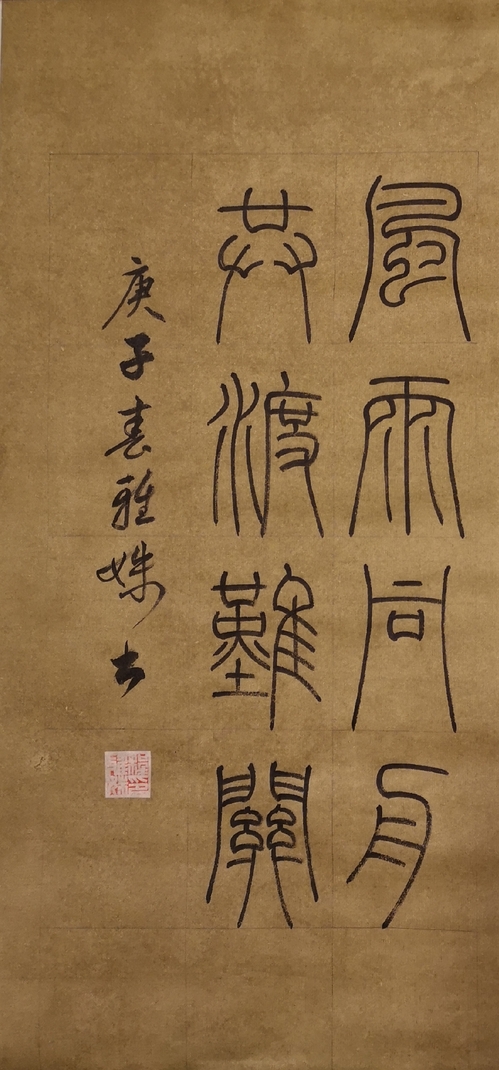 風雨同舟
共渡難關
庚子春雅姝书